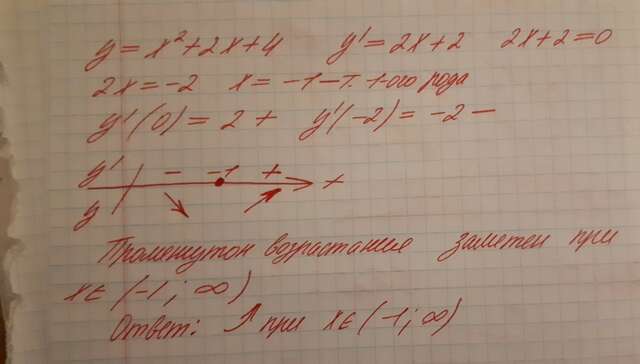 y = x² + 2x + 4 y' = 2x + 2 2x + 2 = 0
2x = -2 x = -1 - т. 1-ого рода
y'(0) = 2 + y'(-2) = -2 -
y' - -1 + x
y ↘ ↗
Промежуток возрастания заметен при
x ∈ (-1; ∞)
Ответ: ↑ при x ∈ (-1; ∞)